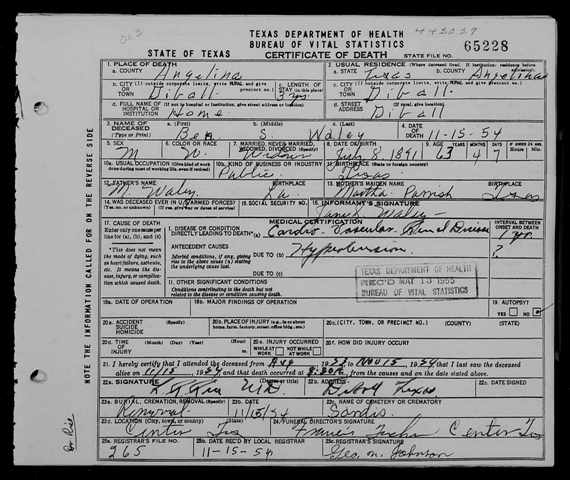 TEXAS DEPARTMENT OF HEALTH
BUREAU OF VITAL STATISTICS
STATE OF TEXAS CERTIFICATE OF DEATH STATE FILE NO. 65228
1. PLACE OF DEATH
a. COUNTY Angelina
2. USUAL RESIDENCE (Where deceased lived. If institution: residence before admission)
a. STATE Texas b. COUNTY Angelina
b. CITY (If outside corporate limits, write RURAL and give precinct no.)
OR TOWN Diball
c. LENGTH OF STAY (in this place) 3 yrs
c. CITY (If outside corporate limits, write RURAL and give precinct no.)
OR TOWN Diball
d. FULL NAME OF (If not in hospital or institution, give street address or location)
HOSPITAL OR INSTITUTION Home
d. STREET ADDRESS (If rural, give location) Diball
3. NAME OF DECEASED (Type or Print) a. (First) Ben b. (Middle) S. c. (Last) Waley
4. DATE OF DEATH 11-15-54
5. SEX M
6. COLOR OR RACE W.
7. MARRIED, NEVER MARRIED, WIDOWED, DIVORCED (Specify)
8. DATE OF BIRTH July 8 1891
9. AGE 63 4 7
10a. USUAL OCCUPATION
10b. KIND OF BUSINESS OR INDUSTRY Public
11. BIRTHPLACE Texas
12. FATHER'S NAME M. Waley BIRTHPLACE La
13. MOTHER'S MAIDEN NAME Martha Parrish BIRTHPLACE Texas
14. WAS DECEASED EVER IN U.S. ARMED FORCES?
15. SOCIAL SECURITY NO.
16. INFORMANT'S SIGNATURE
17. CAUSE OF DEATH
Enter only one cause per line for (a), (b), and (c)
MEDICAL CERTIFICATION
INTERVAL BETWEEN ONSET AND DEATH
I. DISEASE OR CONDITION DIRECTLY LEADING TO DEATH* (a) Cardio-Vascular-Renal Disease 1 yr.
*This does not mean the mode of dying, such as heart failure, asthenia, etc. It means the disease, injury, or complication which caused death.
ANTECEDENT CAUSES
Morbid conditions, if any, giving rise to the above cause (a) stating the underlying cause last.
DUE TO (b) Hypertension. ?
DUE TO (c)
II. OTHER SIGNIFICANT CONDITIONS
Conditions contributing to the death but not related to the disease or condition causing death.
TEXAS DEPARTMENT OF HEALTH
REC'D MAY 13 1955
BUREAU OF VITAL STATISTICS
18a. DATE OF OPERATION
18b. MAJOR FINDINGS OF OPERATION
19. AUTOPSY? YES NO
20a. ACCIDENT SUICIDE HOMICIDE (Specify)
20b. PLACE OF INJURY (e.g., in or about home, farm, factory, street, office bldg., etc.)
20c. (CITY, TOWN, OR PRECINCT NO.) (COUNTY) (STATE)
20d. TIME OF INJURY (Month) (Day) (Year) (Hour)
20e. INJURY OCCURRED WHILE AT WORK NOT WHILE AT WORK
20f. HOW DID INJURY OCCUR?
21. I hereby certify that I attended the deceased from Aug 1952, to Nov 15, 1954, that I last saw the deceased
alive on 11/15, 1954, and that death occurred at m., from the causes and on the date stated above.
22a. SIGNATURE M.D.
22b. ADDRESS Diboll Texas
22c. DATE SIGNED
23a. BURIAL, CREMATION, REMOVAL (Specify) Removal
23b. DATE 11/15/54
23c. NAME OF CEMETERY OR CREMATORY Sardis.
23d. LOCATION (City, town, or county) (State) Center Tex
24. FUNERAL DIRECTOR'S SIGNATURE Center Tex
25a. REGISTRAR'S FILE NO. 265
25b. DATE REC'D BY LOCAL REGISTRAR 11-15-54
25c. REGISTRAR'S SIGNATURE Geo. M. Johnson
NOTE THE INFORMATION CALLED FOR ON THE REVERSE SIDE